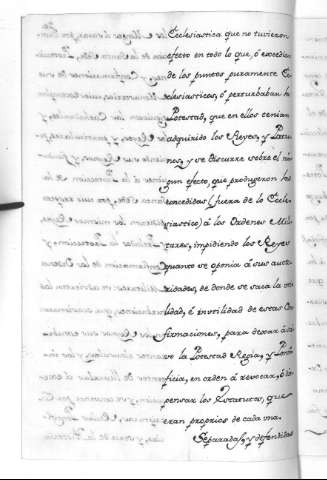 Eclesiastica que no tuvieron
efecto en todo lo que, ó excedien
de los puntos puramente Ec
clesiasticos, ó perturbaban la
Potestad, que en ellos tenian
adquirido los Reyes, y Patro
nos, y se discurre sobre el nin
gun efecto, que produgeron las
concedidas (fuera de lo Eccle
siastico) á las Ordenes Mili
tares, impidiendo los Reyes
quanto se oponia á sus auto
ridades, de donde se saca la uti
lidad, é inutilidad de estas Con
firmaciones, para dexar á sal
vo la Potestad Regia, y Ponti
ficia, en orden á revocar, ó dis
pensar los Estatutos, que
eran proprios de cada una.
Separadas, y defendidas